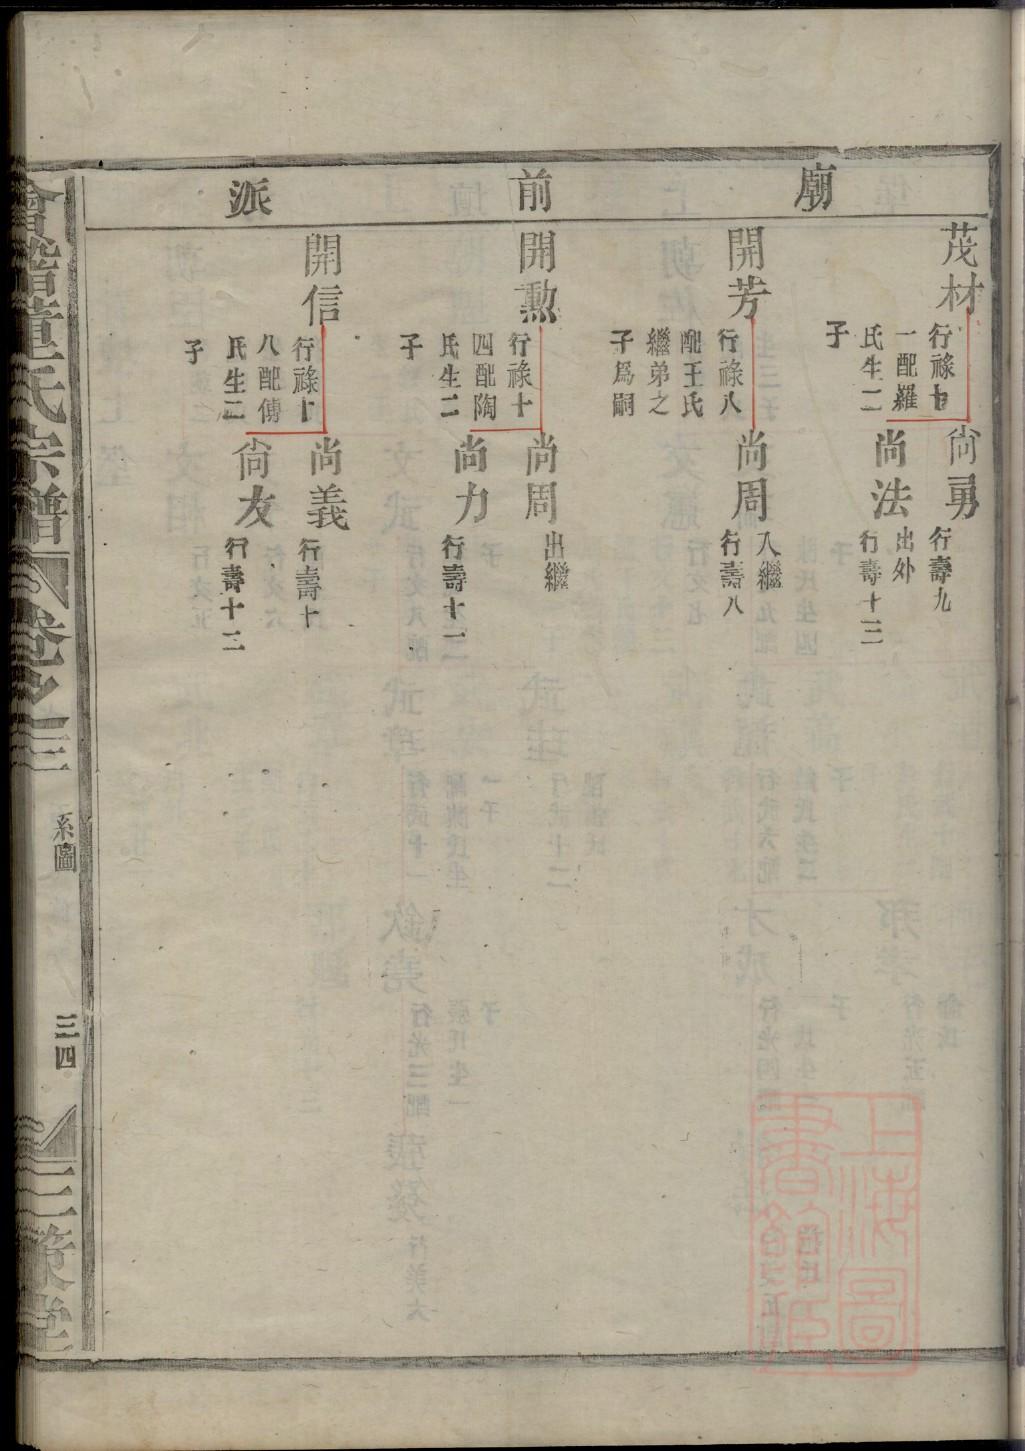 廟前派
茂材
行祿十
一配羅
氏生二
子
尚勇
行壽九
尚法
出外
行壽十三
開芳
行祿八
配王氏
繼弟之
子爲嗣
尚周
入繼
行壽八
開勲
行祿十
四配陶
氏生二
子
尚周
出繼
尚力
行壽十一
開信
行祿十
八配傅
氏生二
子
尚義
行壽十
尙友
行壽十二
會稽董氏宗譜
卷之三
系圖
三四
三策堂
上海圖
書館藏